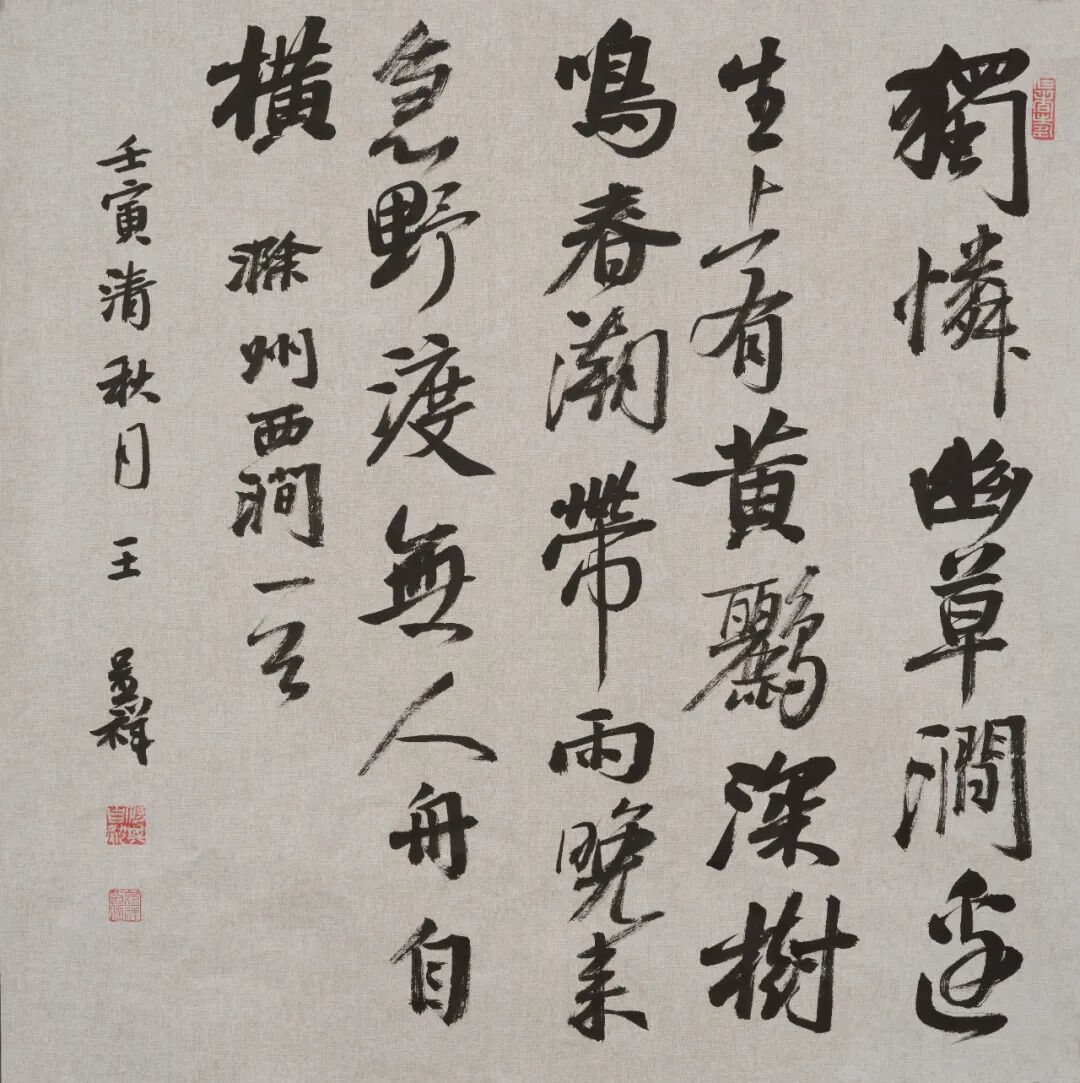 獨憐幽草澗邊
生上有黃鸝深樹
鳴春潮帶雨晚來
急野渡無人舟自
橫 滁州西澗一首
壬寅清秋月 王 祥